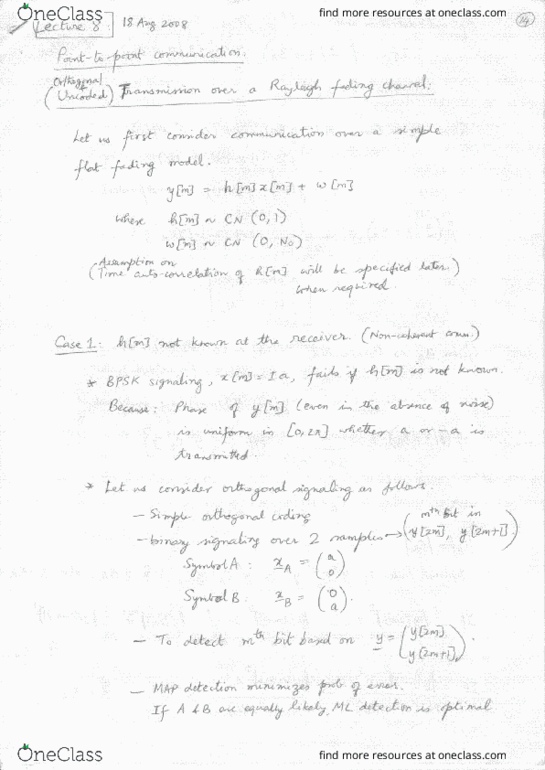 OneClass
find more resources at oneclass.com
Lecture 8: 18 Aug 2008
14
Point-to-point communication.
Orthogonal
(Uncoded) Transmission over a Rayleigh fading channel:
Let us first consider communication over a simple
flat fading model.
y[m] = h[m] x[m] + w[m]
where h[m] ~ CN (0,1)
w[m] ~ CN (0, N0)
Assumption on
(Time auto-correlation of h[m] will be specified later.)
when required
Case 1: h[m] not known at the receiver. (Non-coherent comm.)
* BPSK signaling, x[m] = ±a, fails if h[m] is not known.
Because: Phase of y[m] (even in the absence of noise)
is uniform in [0,2π] whether a or -a is
transmitted.
* Let us consider orthogonal signaling as follows.
- Simple orthogonal coding
mth bit in
- binary signaling over 2 samples → (y[2m], y[2m+1].)
Symbol A: x_A = (a 0)
Symbol B: x_B = (0 a).
- To detect mth bit based on y = (y[2m] y[2m+1]).
- MAP detection minimizes prob of error.
If A & B are equally likely, ML detection is optimal
OneClass
find more resources at oneclass.com